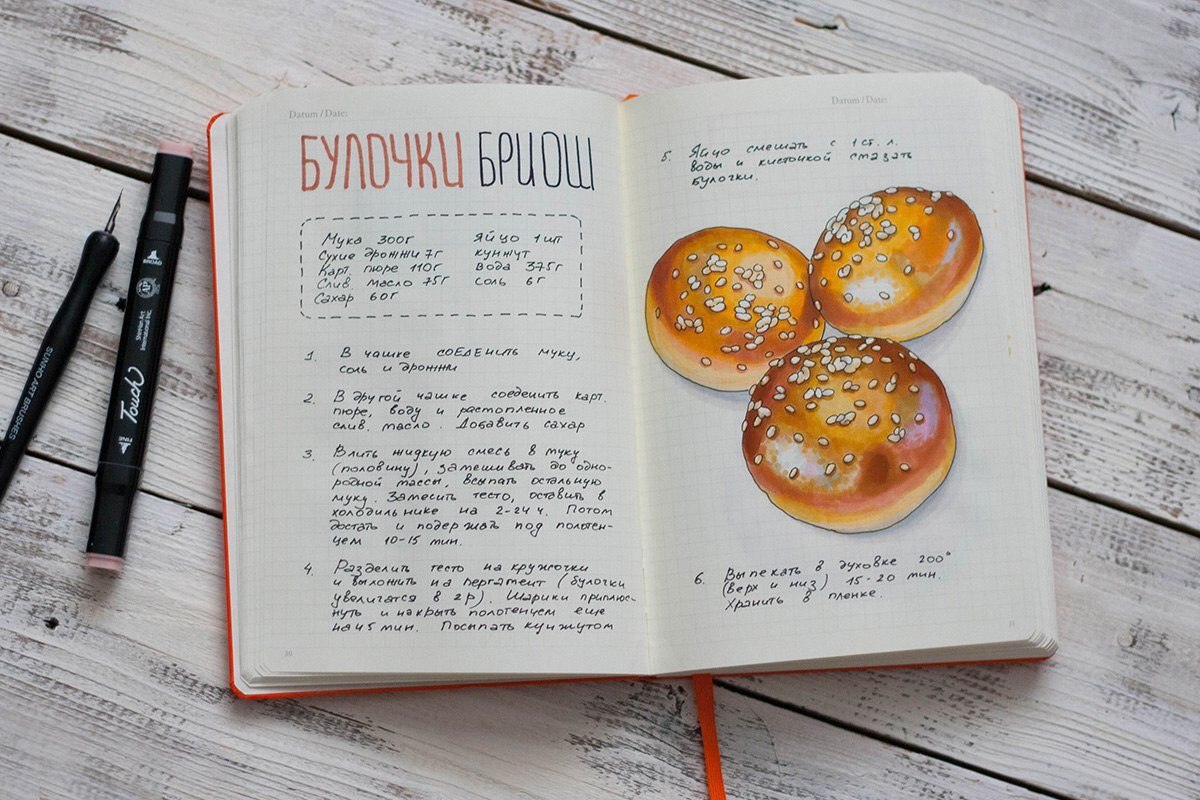 Datum / Date:
БУЛОЧКИ БРИОШ
Мука 300г
Сухие дрожжи 7г
Карт. пюре 110г
Слив. масло 75г
Сахар 60г
Яйцо 1 шт
кунжут
Вода 375г
соль 6г
1. В чашке соеденить муку,
соль и дрожжи
2. В другой чашке соеденить карт.
пюре, воду и растопленное
слив. масло. Добавить сахар
3. Влить жидкую смесь в муку
(половину), замешивать до одно-
родной массы, всыпать остальную
муку. Замесить тесто, оставить в
холодильнике на 2-24 ч. Потом
достать и подержать под полотен-
цем 10-15 мин.
4. Разделить тесто на кружочки
и выложить на пергамент (булочки
увеличатся в 2р). Шарики приплюс-
нуть и накрыть полотенцем еще
на 45 мин. Посыпать кунжутом
30
Datum / Date:
5. Яйцо смешать с 1 ст. л.
воды и кисточкой смазать
булочки.
6. Выпекать в духовке 200°
(верх и низ) 15-20 мин.
Хранить в пленке.
31
SUNHO ART BRUSHES
BROAD
Shinhan Art
International Inc.
Touch
FINE